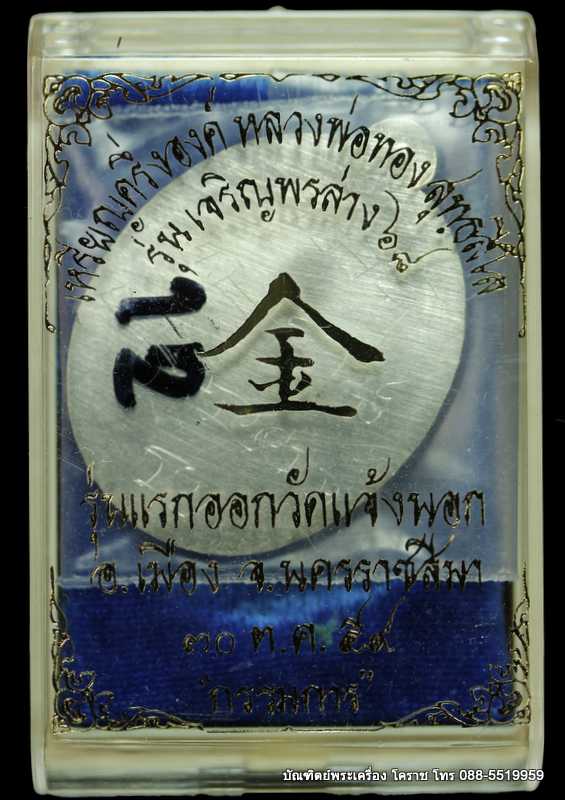 เหรียญครึ่งองค์ หลวงพ่อทอง สุทฺธสีโล
รุ่น เจริญพรล่าง ๖๙
金
รุ่นแรกออกวัดแจ้งพอก
อ.เมือง จ.นครราชสีมา
๓๐ ต.ค. ๕๙
"กรรมการ"
บัณฑิตย์พระเครื่อง โคราช โทร 088-5519959